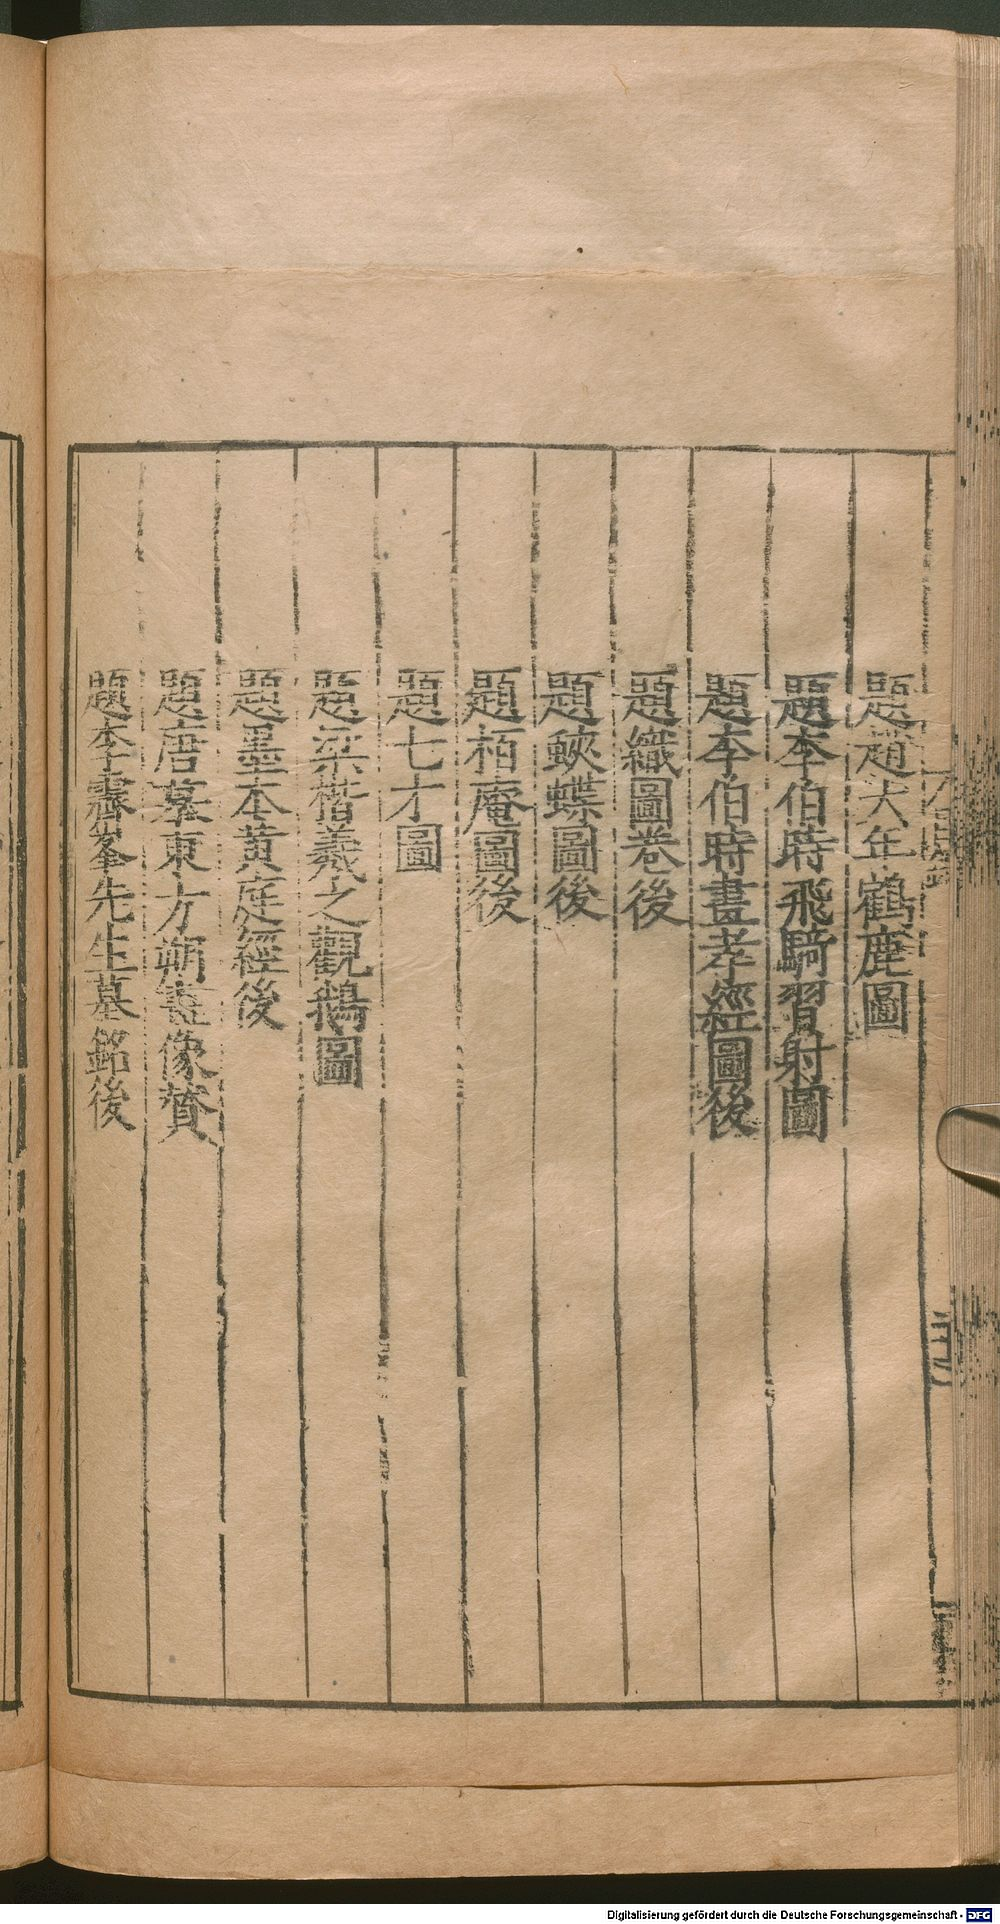 題趙大年鶴鹿圖
題李伯時飛騎習射圖
題李伯時畫孝經圖後
題織圖卷後
題蛺蝶圖後
題栢庵圖後
題七才圖
題梁楷羲之觀鵝圖
題墨本黄庭經後
題唐摹東方朔畫像贊
題李霽峯先生墓銘後
Digitalisierung gefördert durch die Deutsche Forschungsgemeinschaft - DFG